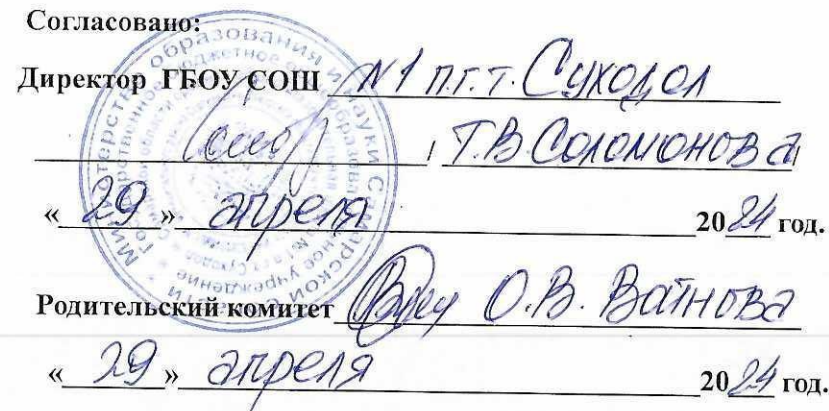 Согласовано:
Директор ГБОУ СОШ №1 п.г.т. Суходол
/ Т.В. Соломонова/
« 29 » апреля 2024 год.
Родительский комитет О.В. Ватнова
« 29 » апреля 2024 год.